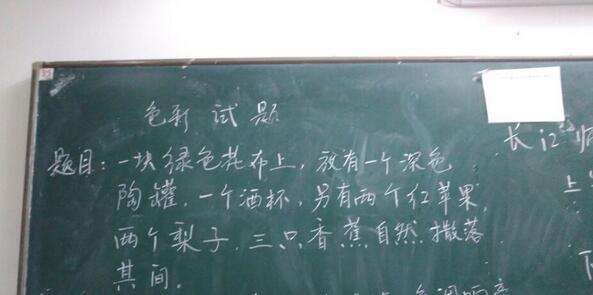 色彩试题
题目：一块绿色花布上，放有一个深色
陶罐，一个酒杯，另有两个红苹果，
两个梨子，三只香蕉自然撒落
其间。
长江师
上